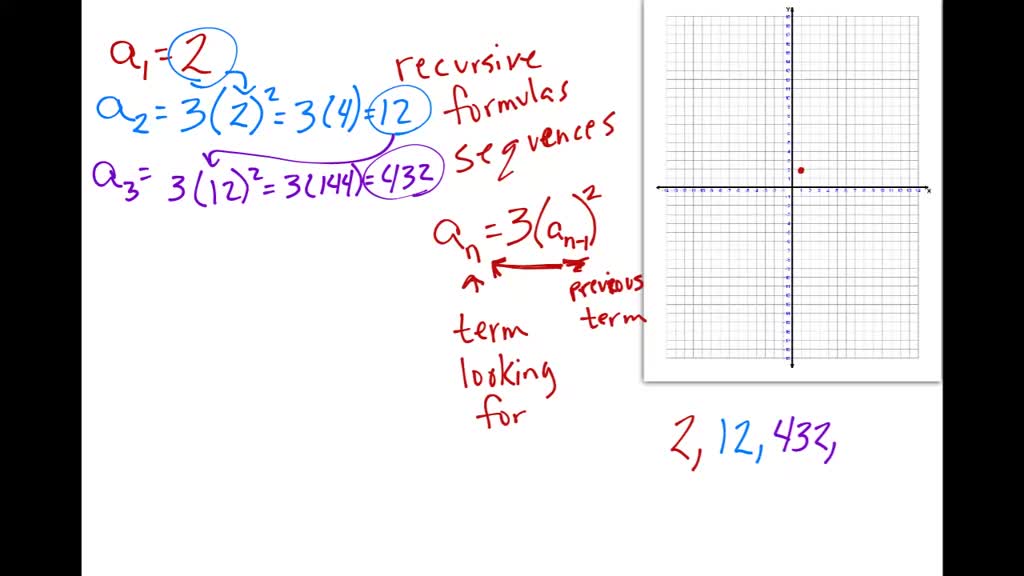 a₁ = 2
a₂ = 3(2)² = 3(4) = 12
a₃ = 3(12)² = 3(144) = 432
recursive
formulas
sequences
aₙ = 3(aₙ₋₁)²
previous
term
term
looking
for
Y
X
2, 12, 432,